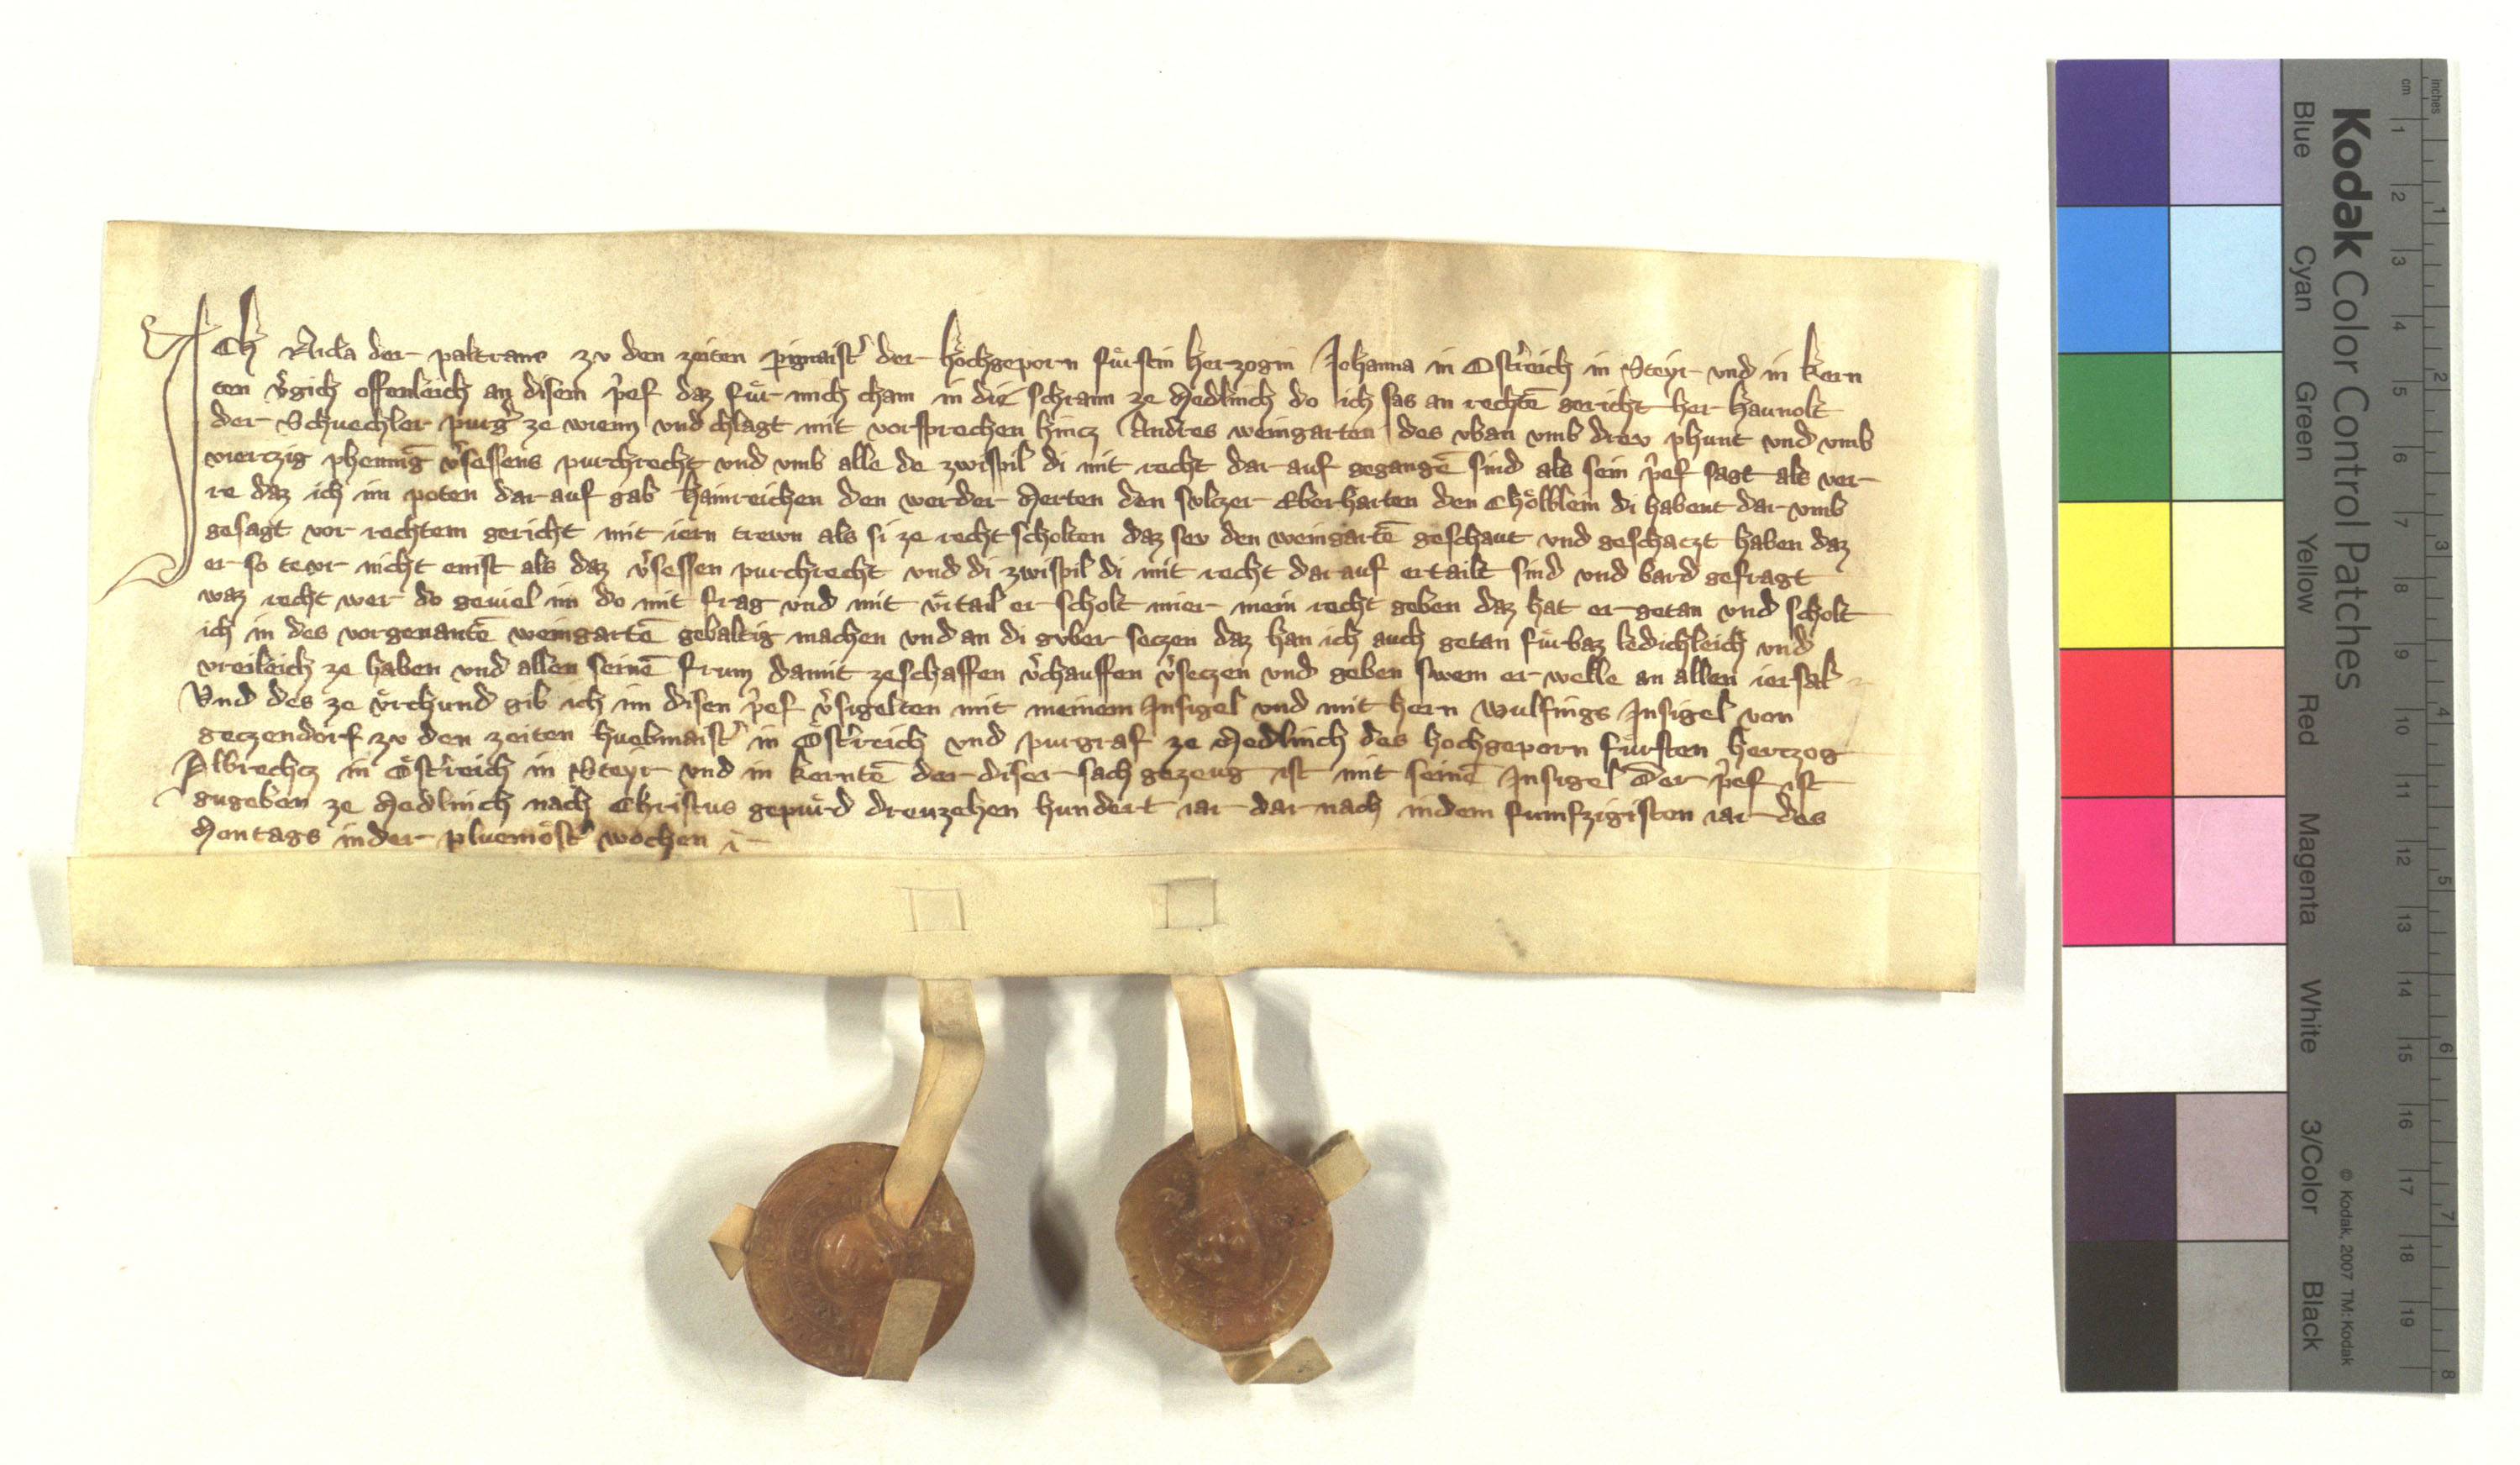 Ich Nicla der paltram zv den zeiten pigmaist' der hochgeporn fuͤrstin herzogin Johanna in Ostr̓eich in Steyr vnd in kern
ten v̓gich offenleich an disem p̓ef daz fuͤr mich cham in die schrann ze Medlinch do ich sas an rechtē gericht her haunolt
der Schuechler purg̓ ze wienn vnd chlagt mit vorsprechen hincz Andres weingarten des vban vmb drev phunt vnd vmb
viertzig phenniḡ v̓sessens purchrecht vnd vmb alle de zwispil di mit recht dar auf gegangē sind als sein p̓ef sagt als ver
re daz ich im poten dar auf gab hainreichen den werder Merten den sulczer Eberharten den Chölblein di habent dar vmb
gesagt vor rechtem gericht mit iern trewn als si ze recht scholten daz sev den weingartē geschaut vnd geschaczt haben daz
er so tevr nicht enist als daz v̓sessen purchrecht vnd di zwispil di mit recht dar auf ertailt sind vnd bard gefragt
waz recht wer do geuiel im do mit frag vnd mit vͤrtail er scholt mier mein recht geben daz hat er getan vnd scholt
ich in des vorgenantē weingartē gebaltig machen vnd an di gvber seczen daz han ich auch getan fuͤrbaz ledichleich vnd
vreileich ze haben vnd allen seinē frum damit ze schaffen v̓chauffen v̓seczen vnd geben swem er welle an allen iersal
Vnd des ze vͤrchund gib ich im disen p̓ef v̓sigelten mit meinem Insigel vnd mit hern wulfings Insigel von
geczendorf zv den zeiten huebmaist̓ in Ostr̓reich vnd purgraf ze Medlinch des hochgeporn fuͤrsten hertzog
Albrechcz in Ostr̓reich in Steyr vnd in kerntē der diser sach gezeug ist mit seinē Insigel Der p̓ef ist
gegeben ze Medlinch nach Christus gepuͤrd dreuzehen hundert iar dar nach in dem fumfzigisten iar des
Mentags in der pluemost̓ wochen
Kodak Color Control Patches
Blue Cyan Green Yellow Red Magenta White 3/Color Black
© Kodak, 2007 TM: Kodak
inches
1 2 3 4 5 6 7 8
cm
1 2 3 4 5 6 7 8 9 10 11 12 13 14 15 16 17 18 19